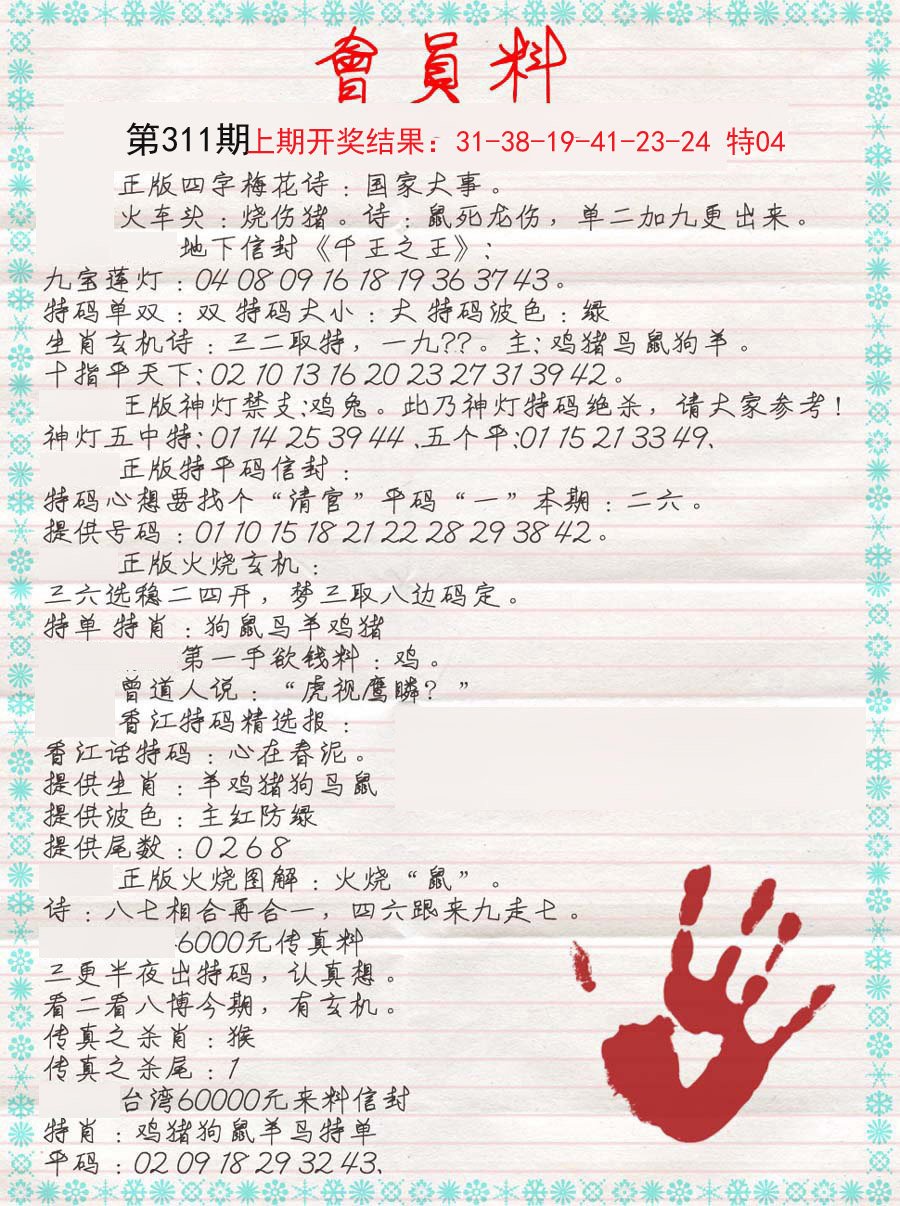 會員料
第311期上期开奖结果：31-38-19-41-23-24 特04
正版四字梅花诗：国家大事。
火车头：烧伤猪。诗：鼠死龙伤，单二加九更出来。
地下信封《千王之王》：
九宝莲灯：04 08 09 16 18 19 36 37 43。
特码单双：双 特码大小：大 特码波色：绿
生肖玄机诗：三二取特，一九??。主：鸡猪马鼠狗羊。
十指平天下：02 10 13 16 20 23 27 31 39 42。
王版神灯禁支：鸡兔。此乃神灯特码绝杀，请大家参考！
神灯五中特：01 14 25 39 44、五个平：01 15 21 33 49、
正版特平码信封：
特码心想要找个“清官”平码“一”本期：二六。
提供号码：01 10 15 18 21 22 28 29 38 42。
正版火烧玄机：
三六选稳二四开，梦三取八边码定。
特单 特肖：狗鼠马羊鸡猪
第一手欲钱料：鸡。
曾道人说：“虎视鹰瞵？”
香江特码精选报：
香江话特码：心在春泥。
提供生肖：羊鸡猪狗马鼠
提供波色：主红防绿
提供尾数：0 2 6 8
正版火烧图解：火烧“鼠”。
诗：八七相合再合一，四六跟来九走七。
6000元传真料
三更半夜出特码，认真想。
看二看八博今期，有玄机。
传真之杀肖：猴
传真之杀尾：1
台湾60000元来料信封
特肖：鸡猪狗鼠羊马特单
平码：02 09 18 29 32 43、